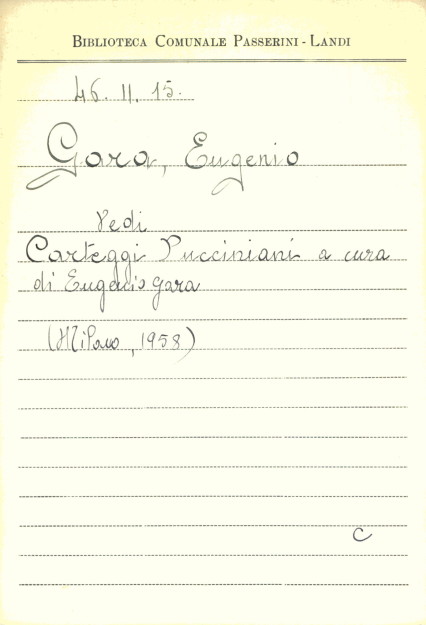 BIBLIOTECA COMUNALE PASSERINI - LANDI
46. II. 15.
Gara, Eugenio
Vedi
Carteggi Pucciniani a cura
di Eugenio Gara
(Milano, 1958)
C